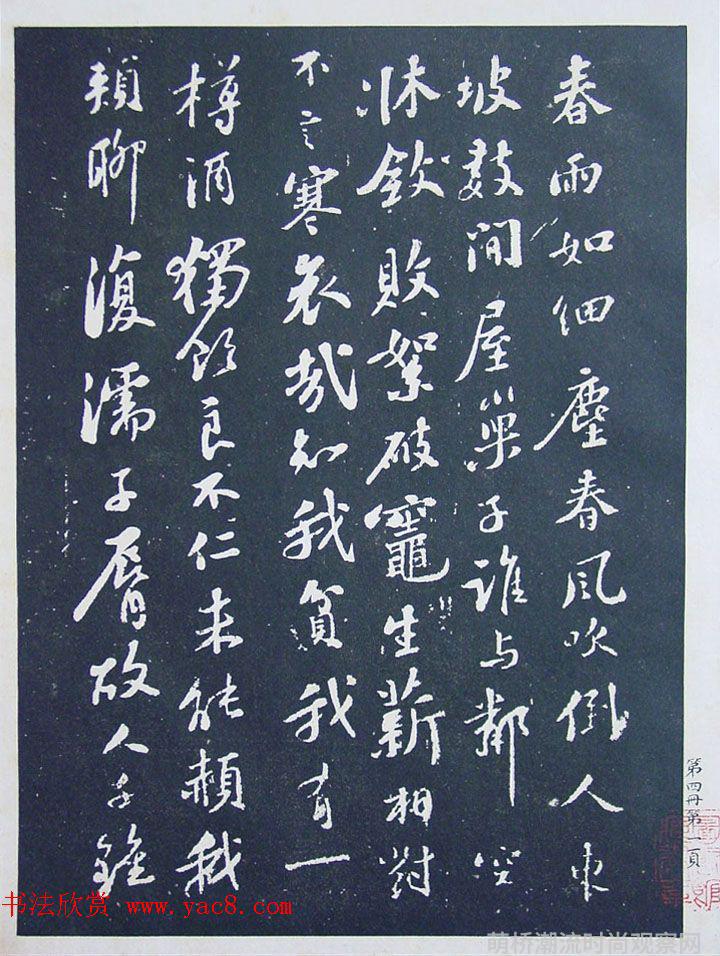 春雨如細塵春風吹倒人東
坡數間屋巢子誰与鄰空
牀斂敗絮破竈生薪相對
不言寒哀哉知我貧我有一
樽酒獨飲良不仁未能赬我
頰聊復濡子脣故人千鍾
第四冊第一頁
书法欣赏 www.yac8.com
萌桥潮流时尚观察网